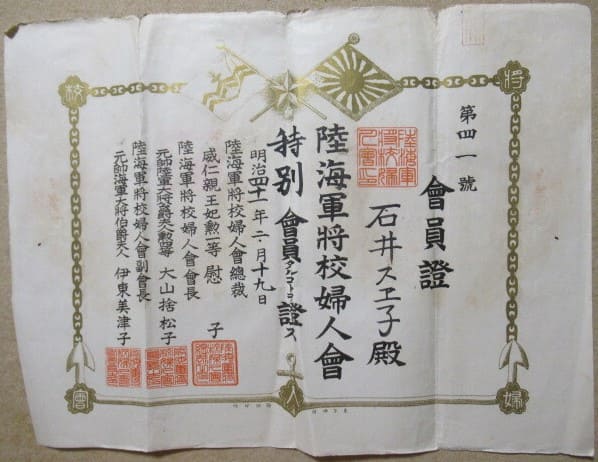 將
校
婦
人
會
第四一號
會員證
石井スヱ子殿
陸海軍將校婦人會
特別會員タルコトヲ證ス
明治四十一年二月十九日
陸海軍將校婦人會總裁
威仁親王妃勲一等慰子
陸海軍將校婦人會會長
元帥陸軍大將 大山捨松子
陸海軍將校婦人會副會長
元帥海軍大將伯爵夫人 伊東美津子